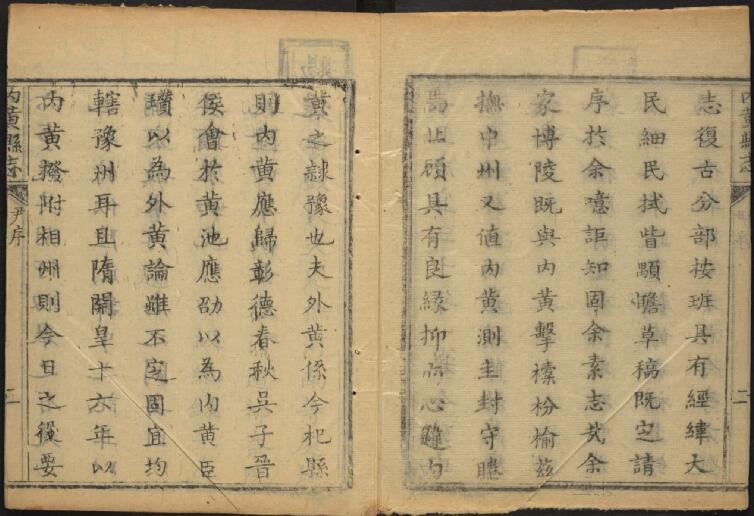 志復古分部按班具有經緯大
民細民拭眥顒瞻草稿既定請
序於余噫詎知固余素志哉余
家博陵既與內黃擊榛枌榆茲
撫中州又值內黃測圭封守睠
焉具有良緣抑心
黃之隸豫也夫外黃係今杞縣
則內黃應歸彰德春秋吳子晉
侯會於黃池應劭以為內黃臣
瓚以為外黃論雖不定固宜均
轄豫州耳且隋開皇十六年以
內黃撥附相州則今日之役要
內黃縣志 尹序 二